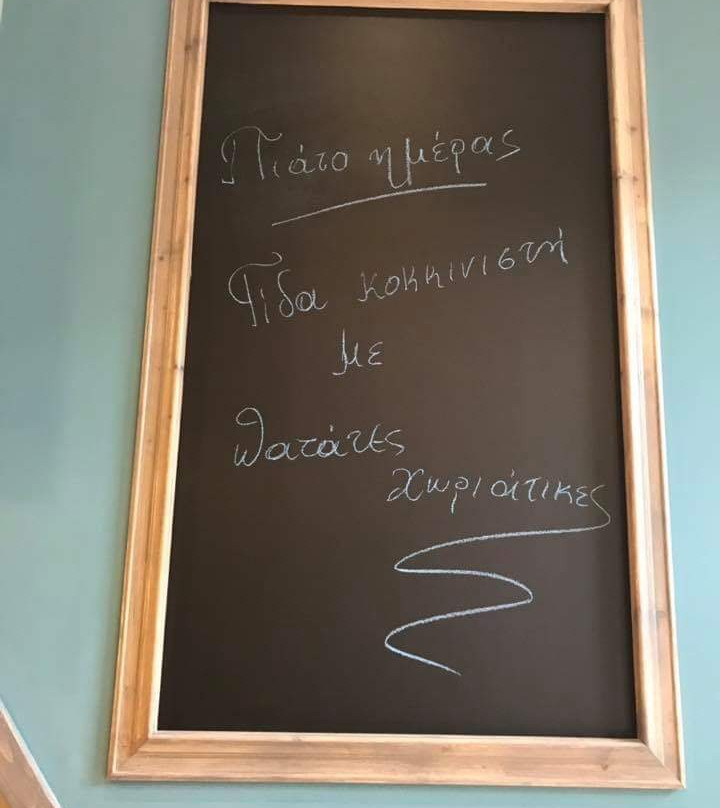 Πιάτο ημέρας
Γίδα κοκκινιστή
με
Πατάτες
Χωριάτικες